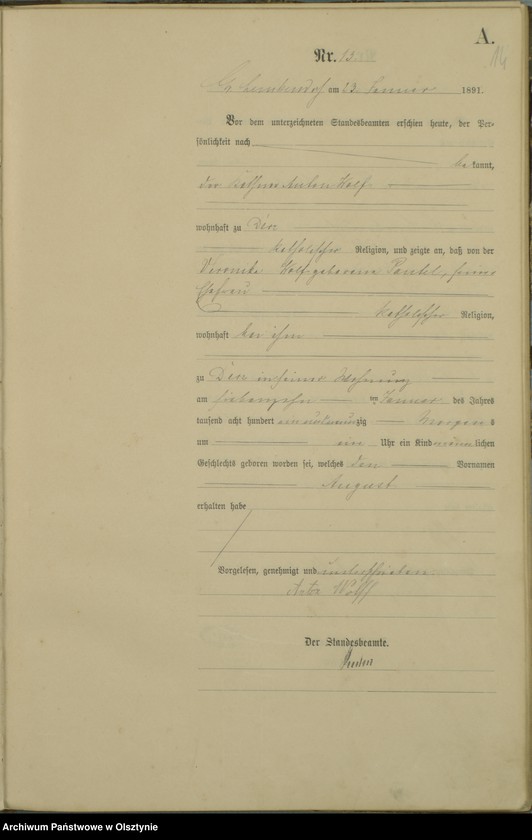 A.
14
Nr. 13
am 23. Januar 1891.
Vor dem unterzeichneten Standesbeamten erschien heute, der Per-
sönlichkeit nach
be kannt,
der Anton Wolf
wohnhaft zu
katholischer Religion, und zeigte an, daß von der
Veronika Wolf geborene seiner
Ehefrau
katholischer Religion,
wohnhaft bei ihm
zu in seiner Wohnung
am siebenzehn ten Januar des Jahres
tausend acht hundert einundneunzig Morgens
um ein Uhr ein Kind männlichen
Geschlechts geboren worden sei, welches den Vornamen
August
erhalten habe
Vorgelesen, genehmigt und unterschrieben
Wolff
Der Standesbeamte.
Archiwum Państwowe w Olsztynie